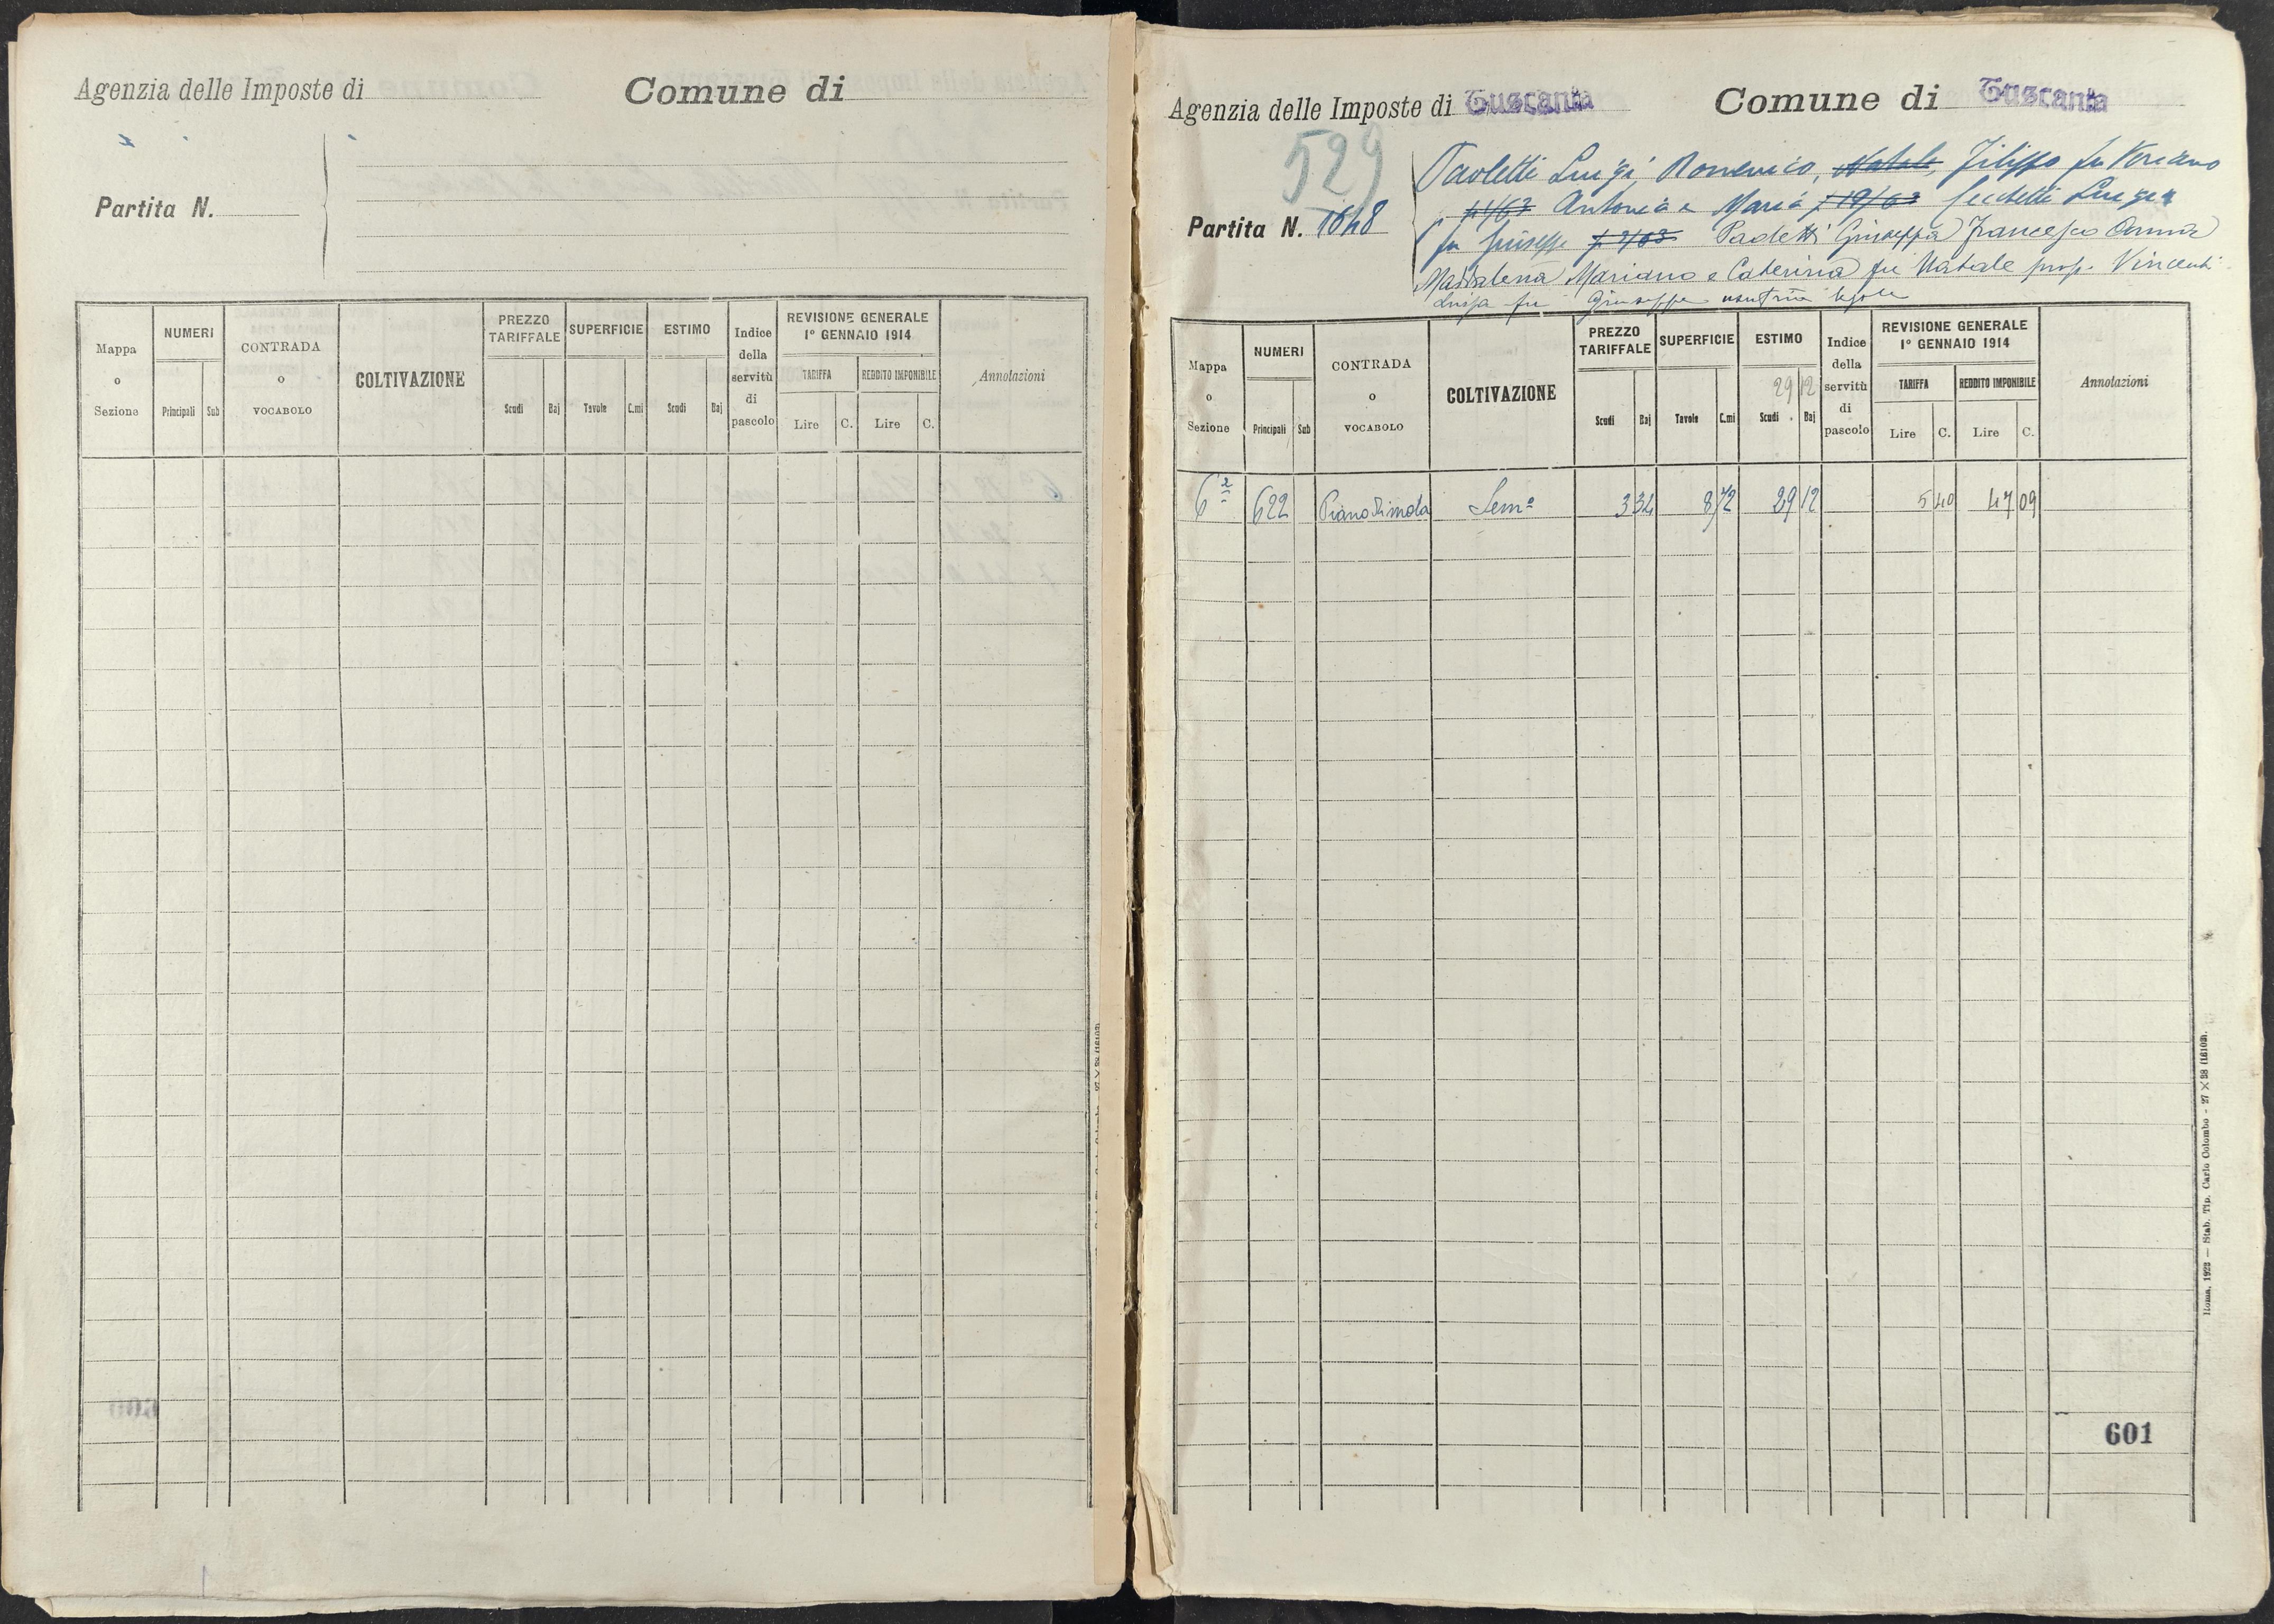 Agenzia delle Imposte di Comune di
Partita N.
Mappa o Sezione NUMERI Principali Sub CONTRADA o VOCABOLO COLTIVAZIONE PREZZO TARIFFALE Scudi Baj SUPERFICIE Tavole C.mi ESTIMO Scudi Baj Indice della servitù di pascolo REVISIONE GENERALE 1° GENNAIO 1914 TARIFFA Lire C. REDDITO IMPONIBILE Lire C. Annotazioni
Agenzia delle Imposte di Tuscania Comune di Tuscania
529
Partita N. 1648
Paoletti Luigi, Domenico, Natale, Filippo fu
p 1/63 Antonia e Maria p 19/63 Luigia
fu Giuseppe p 2/63 Paoletti Giuseppa Francesco Anna
Maddalena Mariano e Caterina fu Natale prop. Vincenti
Luisa fu Giuseppe usufr legale
Mappa o Sezione NUMERI Principali Sub CONTRADA o VOCABOLO COLTIVAZIONE PREZZO TARIFFALE Scudi Baj SUPERFICIE Tavole C.mi ESTIMO 29 12 Scudi Baj Indice della servitù di pascolo REVISIONE GENERALE 1° GENNAIO 1914 TARIFFA Lire C. REDDITO IMPONIBILE Lire C. Annotazioni
6ª 622 Piano di mola Sem° 3 34 8 72 29 12 5 40 47 09
601
Roma, 1922 — Stab. Tip. Carlo Colombo - 27 × 38 (16103).